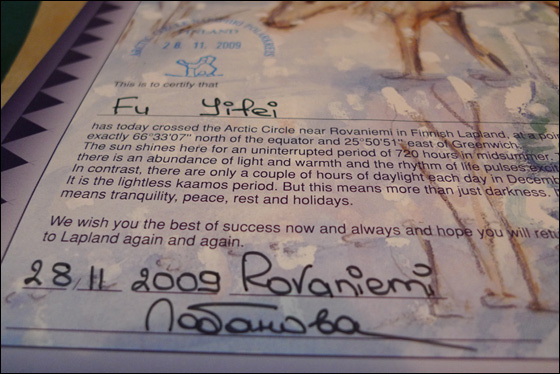 FINLAND
28. 11. 2009
This is to certify that
Fu Yifei
has today crossed the Arctic Circle near Rovaniemi in Finnish Lapland, at a poi
exactly 66°33'07" north of the equator and 25°50'51" east of Greenwich.
The sun shines here for an uninterrupted period of 720 hours in midsummer
there is an abundance of light and warmth and the rhythm of life pulses excit
In contrast, there are only a couple of hours of daylight each day in Decemb
It is the lightless kaamos period. But this means more than just darkness.
means tranquility, peace, rest and holidays.
We wish you the best of success now and always and hope you will retu
to Lapland again and again.
28.11 2009 Rovaniemi
Лобанова